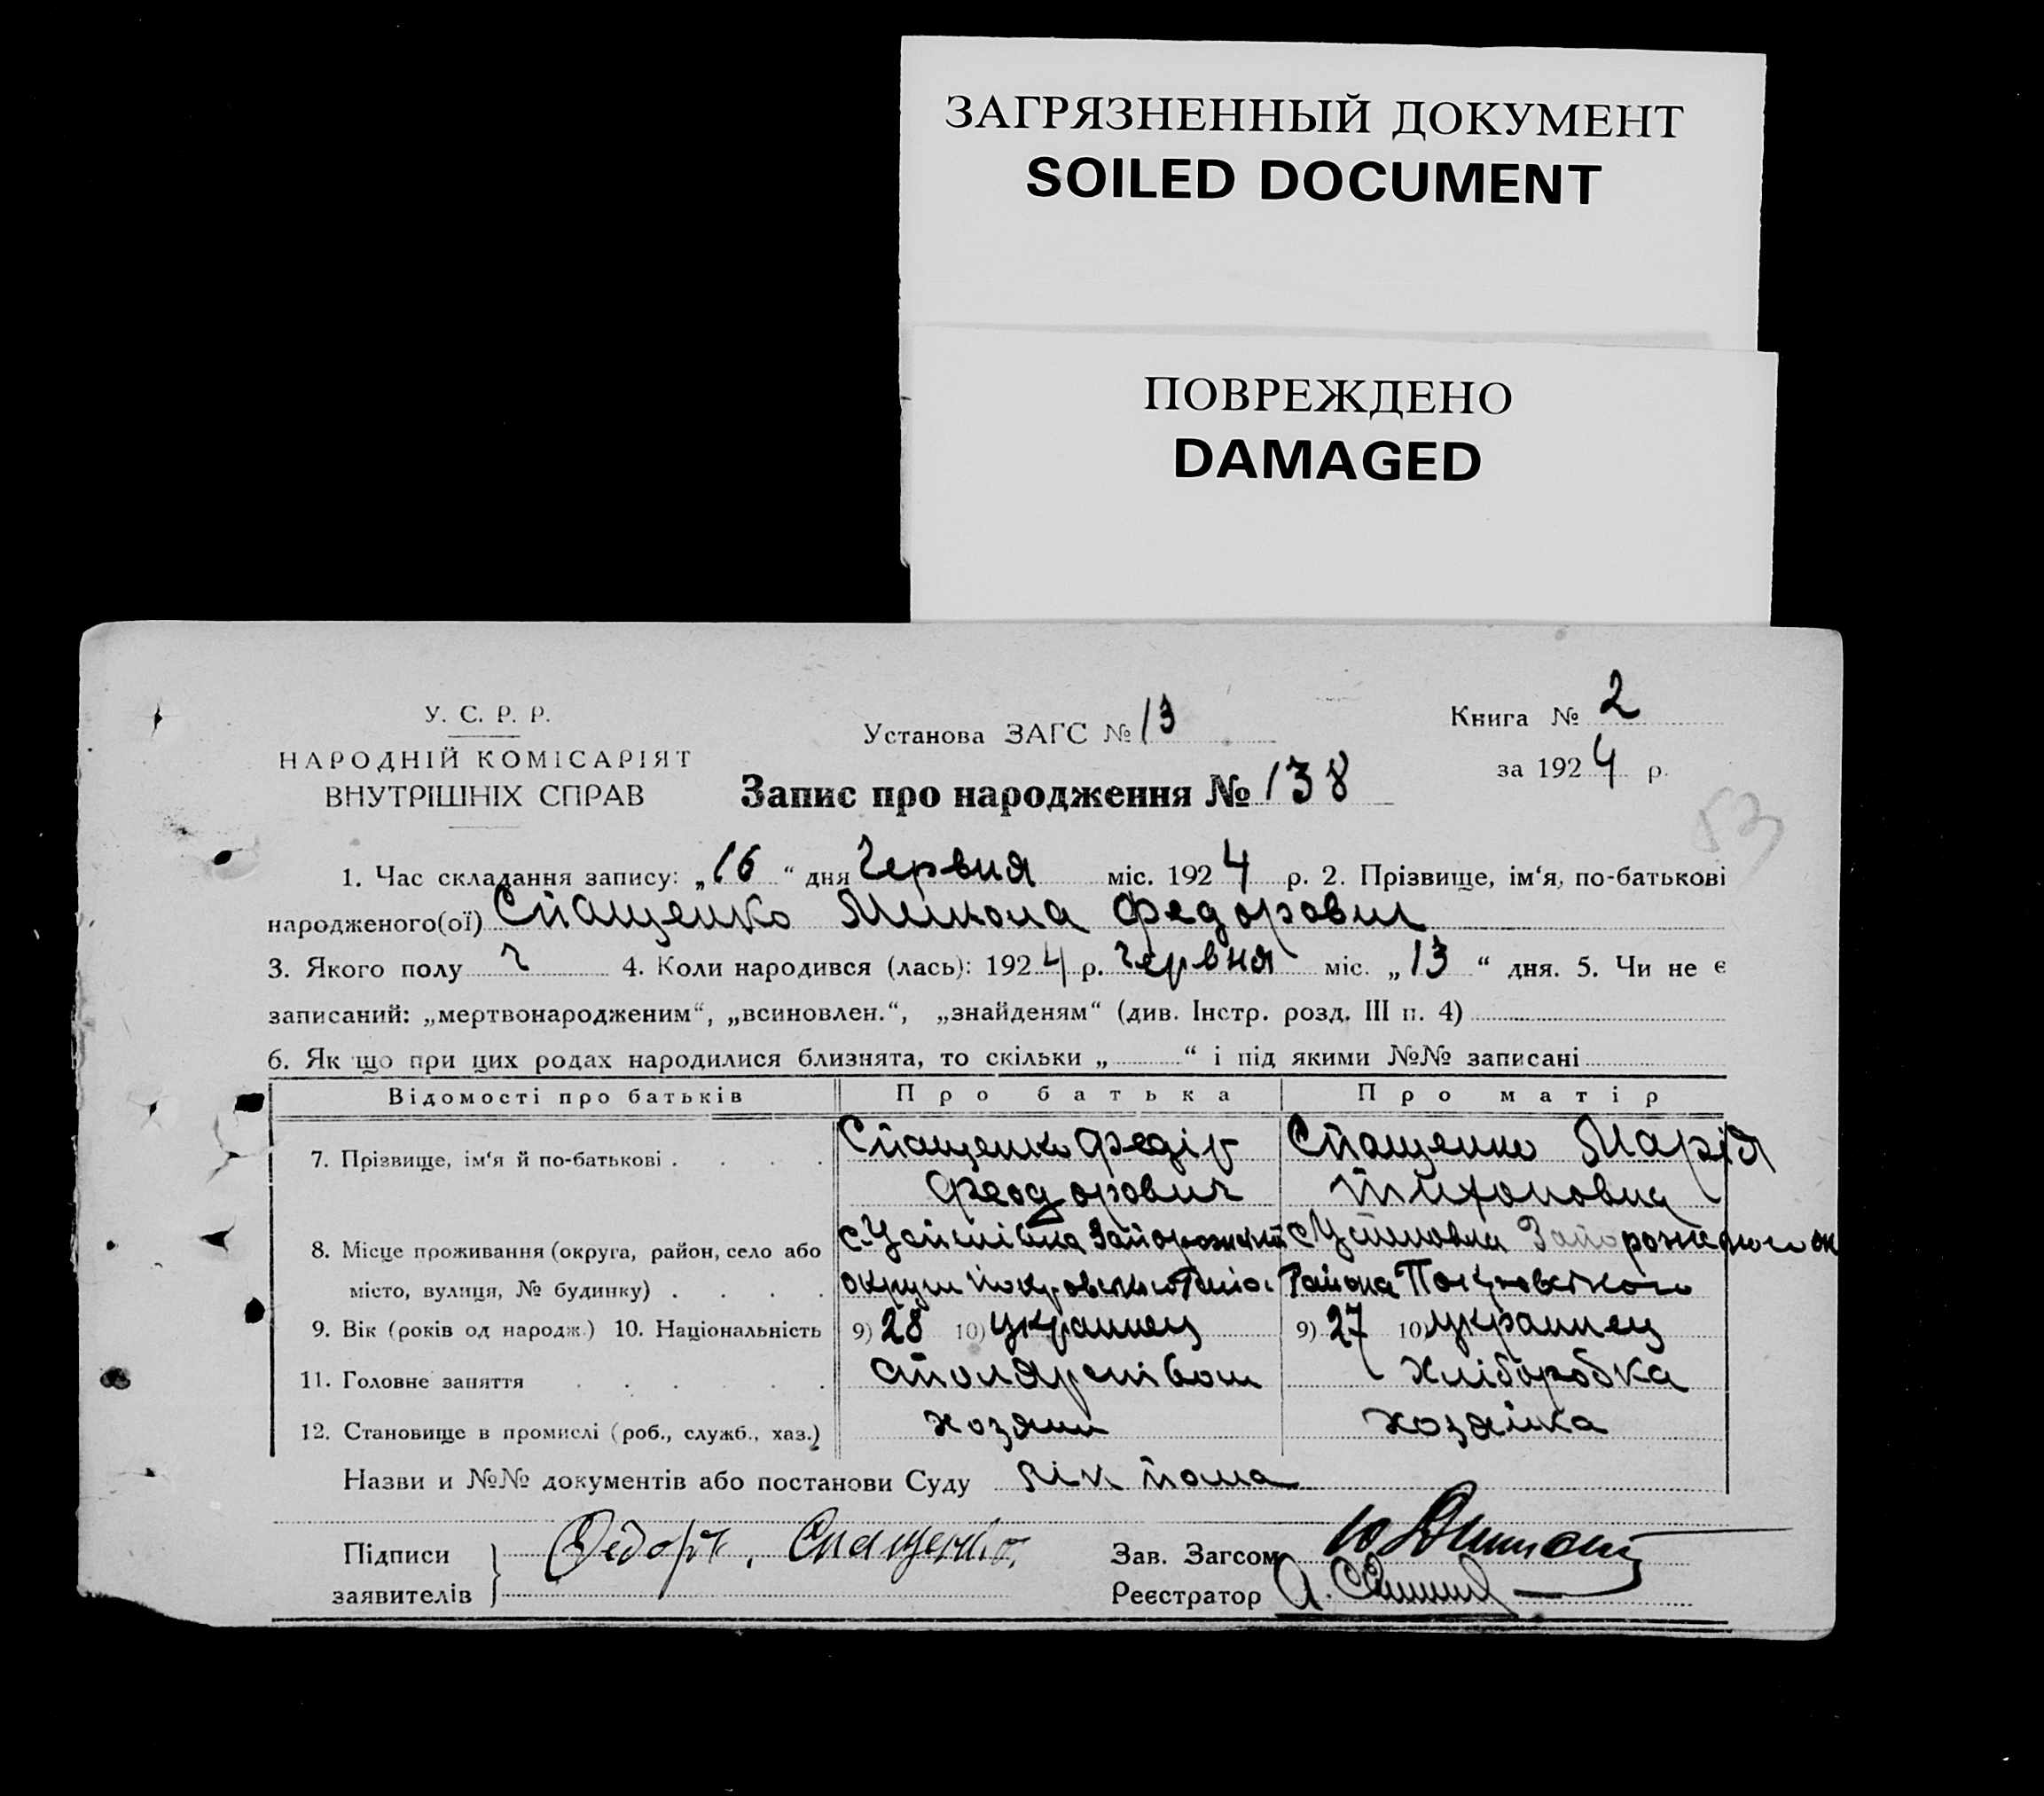 ЗАГРЯЗНЕННЫЙ ДОКУМЕНТ
SOILED DOCUMENT
ПОВРЕЖДЕНО
DAMAGED
У. С. Р. Р.
НАРОДНІЙ КОМІСАРІЯТ
ВНУТРІШНІХ СПРАВ
Установа ЗАГС № 13
Книга № 2
за 1924 р.
Запис про народження № 138
53
1. Час складання запису: „16“ дня Червня міс. 1924 р. 2. Прізвище, ім‘я, по-батькові
народженого(ої) Спащенко Микола Федорович
3. Якого полу ч 4. Коли народився (лась): 1924 р. Червня міс. „13“ дня. 5. Чи не є
записаний: „мертвонародженим“, „всиновлен.“, „знайденям“ (див. Інстр. розд. III п. 4)
6. Як що при цих родах народилися близнята, то скільки „ “ і під якими №№ записані
Відомості про батьків Про батька Про матір
7. Прізвище, ім‘я й по-батькові . . . . Спащенко Федір Спащенко Марія
Феодорович Тихоновна
8. Місце проживання (округа, район, село або
місто, вулиця, № будинку) . . . . округи Покровського Района Покровского
9. Вік (років од народж.) 10. Національність 9) 28 10) украинец 9) 27 10) украинец
11. Головне заняття . . . . . . столярством хліборобка
12. Становище в промислі (роб., служб., хаз.) хозяин хозяйка
Назви и №№ документів або постанови Суду
Підписи
заявителів
Федоръ. Спащенко.
Зав. Загсом
Реєстратор